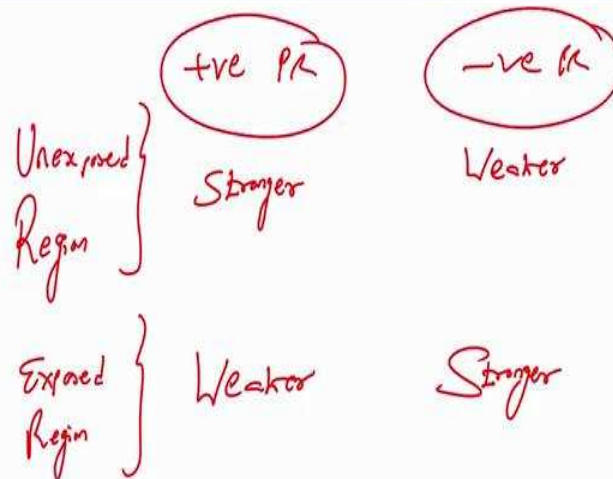 +ve PR -ve PR
Unexposed
Region
Stronger Weaker
Exposed
Region
Weaker Stronger